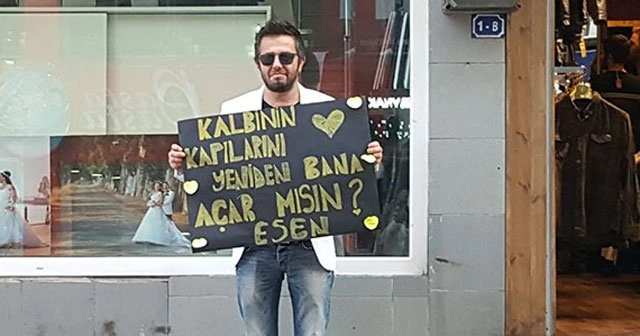 1-8
KALBİNİN
KAPILARINI
YENİDEN BANA
AÇAR MISIN?
ESEN